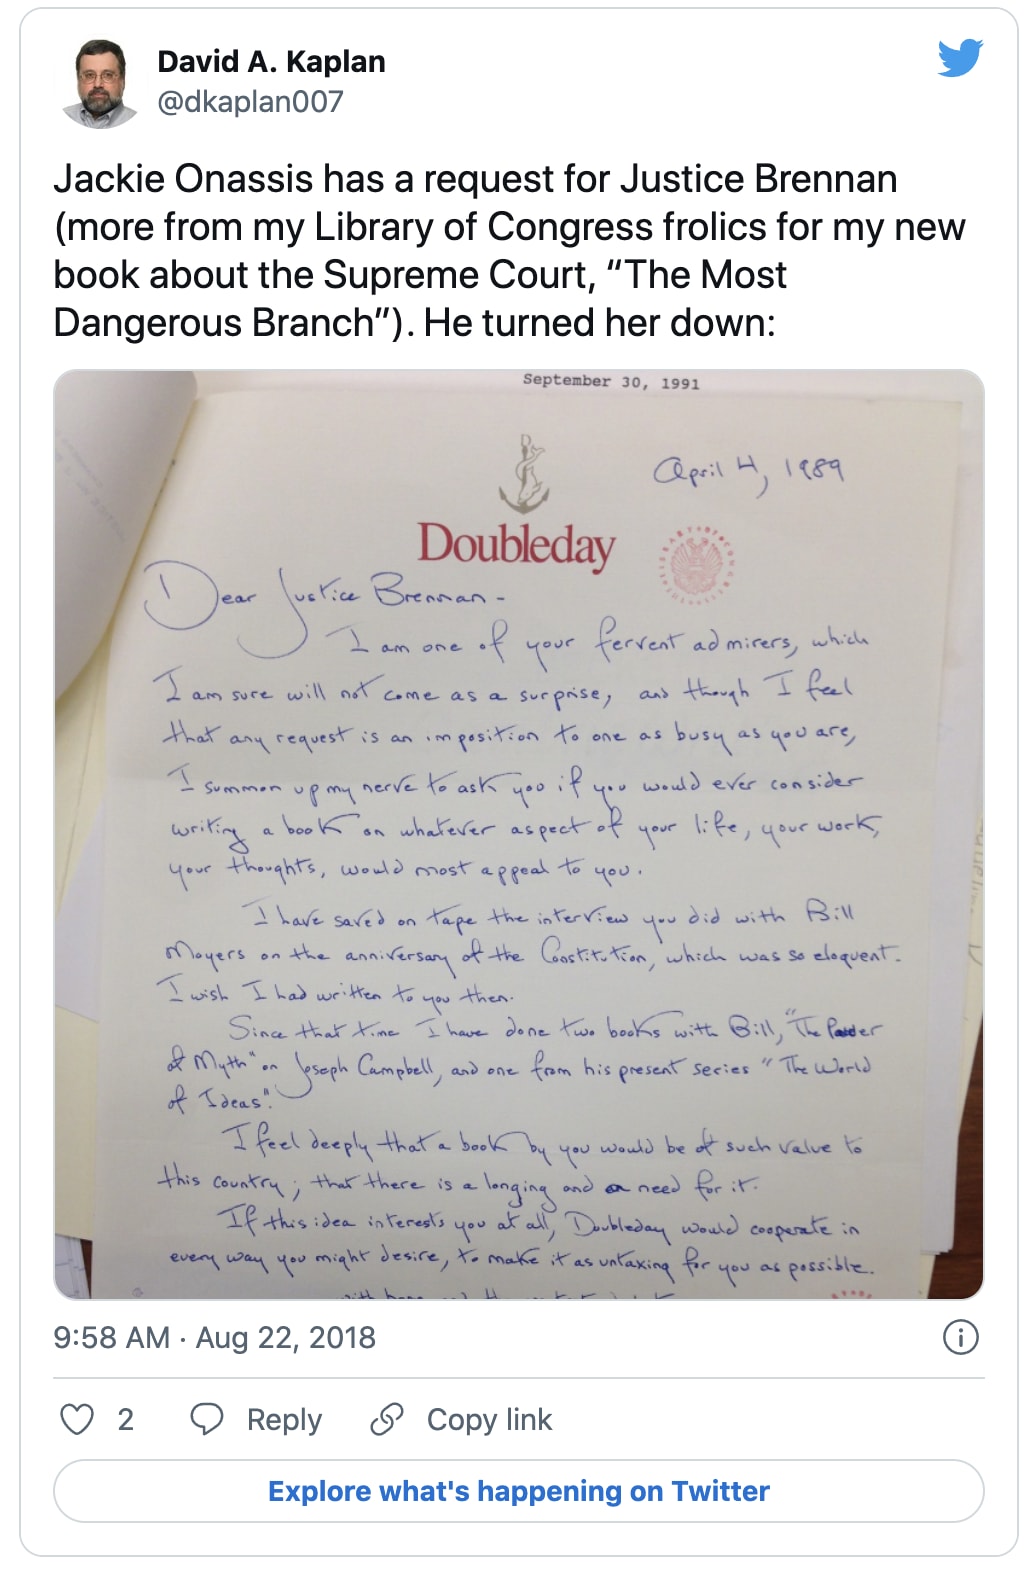 David A. Kaplan
@dkaplan007
Jackie Onassis has a request for Justice Brennan
(more from my Library of Congress frolics for my new
book about the Supreme Court, “The Most
Dangerous Branch”). He turned her down:
September 30, 1991
April 4, 1989
Doubleday
Dear Justice Brennan -
I am one of your fervent admirers, which
I am sure will not come as a surprise, and though I feel
that any request is an imposition to one as busy as you are,
I summon up my nerve to ask you if you would ever consider
writing a book on whatever aspect of your life, your work,
your thoughts, would most appeal to you.
I have saved on tape the interview you did with Bill
Moyers on the anniversary of the Constitution, which was so eloquent.
I wish I had written to you then.
Since that time I have done two books with Bill, "The Power
of Myth" on Joseph Campbell, and one from his present series "The World
of Ideas".
I feel deeply that a book by you would be of such value to
this country; that there is a longing and a need for it.
If this idea interests you at all, Doubleday would cooperate in
every way you might desire, to make it as untaxing for you as possible.
9:58 AM · Aug 22, 2018
2
Reply
Copy link
Explore what's happening on Twitter